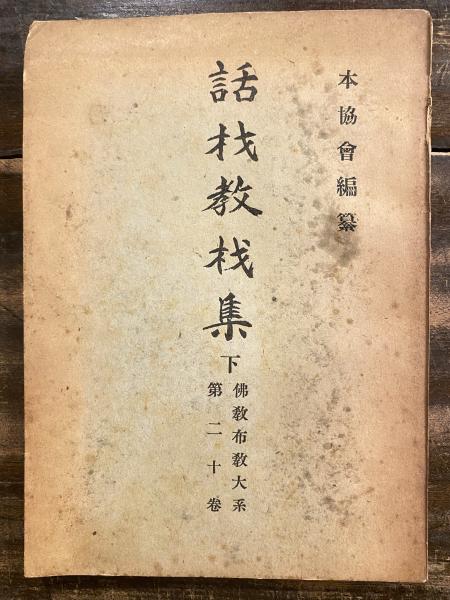 本協會編纂
話材教材集
下
佛教布教大系
第二十卷